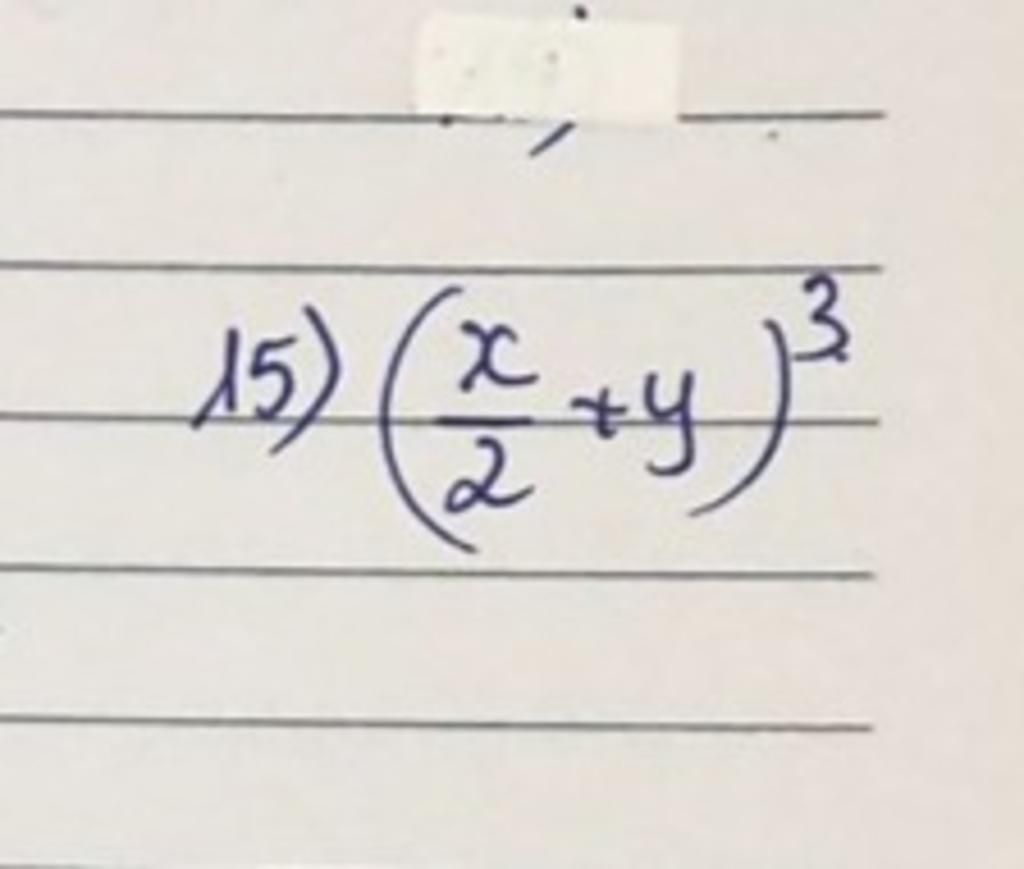 15) (x/2 + y)³